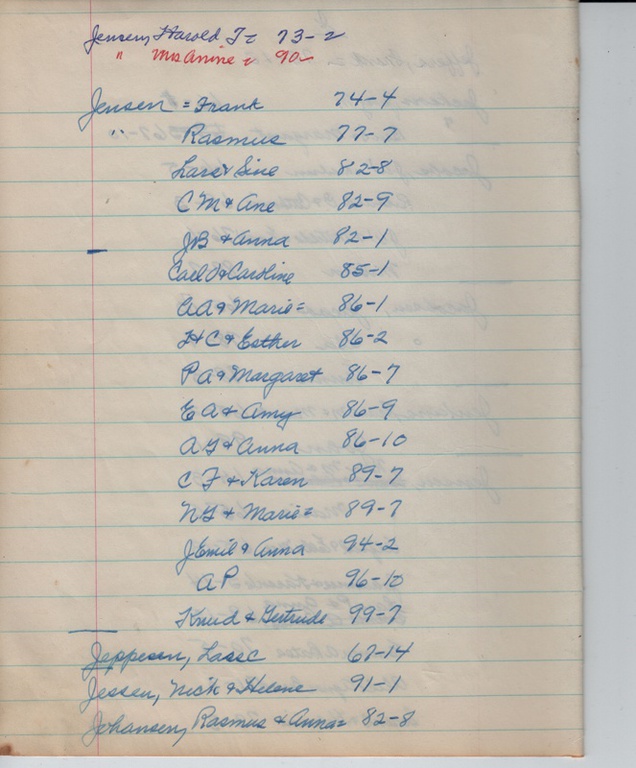 Jensen, Harold T = 73-2
" Mrs Anine = 90-
Jensen = Frank 74-4
" Rasmus 77-7
Lars & Sine 82-8
C M & Ane 82-9
JB & Anna 82-1
Carl O & Caroline 85-1
AA & Marie = 86-1
H C & Esther 86-2
P A & Margaret 86-7
E A & Amy 86-9
A G & Anna 86-10
C F & Karen 89-7
N G & Marie = 89-7
J Emil & Anna 94-2
A P 96-10
Knud & Gertrude 99-7
Jeppesen, Lasse 67-14
Jessen, Nick & Helene 91-1
Johansen, Rasmus & Anna = 82-8